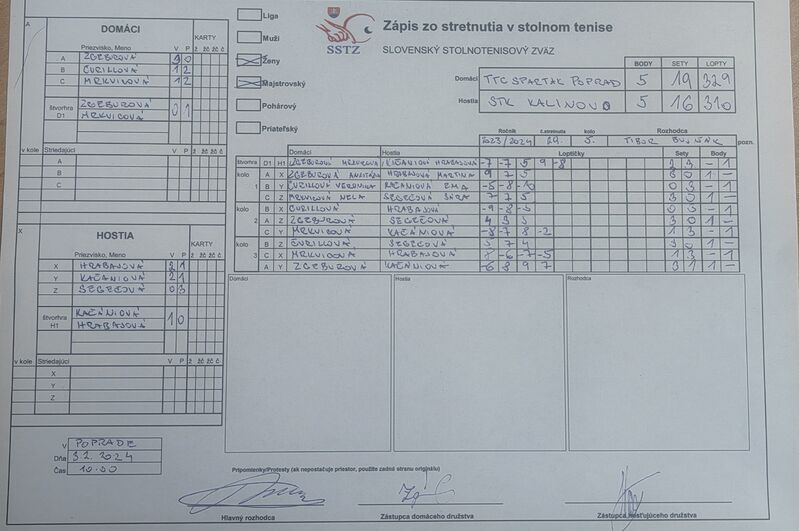 Zápis zo stretnutia v stolnom tenise
SLOVENSKÝ STOLNOTENISOVÝ ZVÄZ
SSTZ
Liga
Muži
Ženy
Majstrovský
Pohárový
Priateľský
BODY SETY LOPTY
Domáci TTC SPARTAK POPRAD 5 19 329
Hostia STK KALINOVO 5 16 310
Ročník č.stretnutia kolo Rozhodca
2023/2024 29. 5. TIBOR
pozn.
A
DOMÁCI
KARTY
Priezvisko, Meno V P ž žč žč č
A ŽGEBUROVÁ 3 0
B ČURILLOVÁ 1 2
C MRKVICOVÁ 1 2
štvorhra D1 ŽGEBUROVÁ MRKVICOVÁ 0 1
v kole Striedajúci V P ž žč žč č
A
B
C
X
HOSTIA
KARTY
Priezvisko, Meno V P ž žč žč č
X HRABAJOVÁ 2 1
Y KAČÁNIOVÁ 2 1
Z SEGEČOVÁ 0 3
štvorhra H1 KAČÁNIOVÁ HRABAJOVÁ 1 0
v kole Striedajúci V P ž žč žč č
X
Y
Z
Domáci Hostia Loptičky Sety Body
štvorhra D1 H1 ŽGEBUROVÁ MRKVICOVÁ KAČÁNIOVÁ HRABAJOVÁ -7 -7 5 9 -8 2 3 - 1
kolo A X ŽGEBUROVÁ HRABAJOVÁ MARTINA 9 7 5 3 0 1 -
1 B Y ČURILLOVÁ VERONIKA KAČÁNIOVÁ EMA -5 -8 -10 0 3 - 1
C Z MRKVICOVÁ NELA SEGEČOVÁ SÁRA 7 7 5 3 0 1 -
kolo B X ČURILLOVÁ HRABAJOVÁ -9 -8 0 3 - 1
2 A Z ŽGEBUROVÁ SEGEČOVÁ 4 3 5 3 0 1 -
C Y MRKVICOVÁ KAČÁNIOVÁ -8 -7 8 -2 1 3 - 1
kolo B Z ČURILLOVÁ SEGEČOVÁ 5 7 4 3 0 1 -
3 C X MRKVICOVÁ HRABAJOVÁ 8 -6 -7 -5 1 3 - 1
A Y ŽGEBUROVÁ KAČÁNIOVÁ -6 8 9 7 3 1 1 -
Domáci Hostia Rozhodca
V POPRADE
Dňa 3.2. 2024
Čas 10.00
Pripomienky/Protesty (ak nepostačuje priestor, použite zadnú stranu originálu)
Hlavný rozhodca Zástupca domáceho družstva Zástupca hosťujúceho družstva